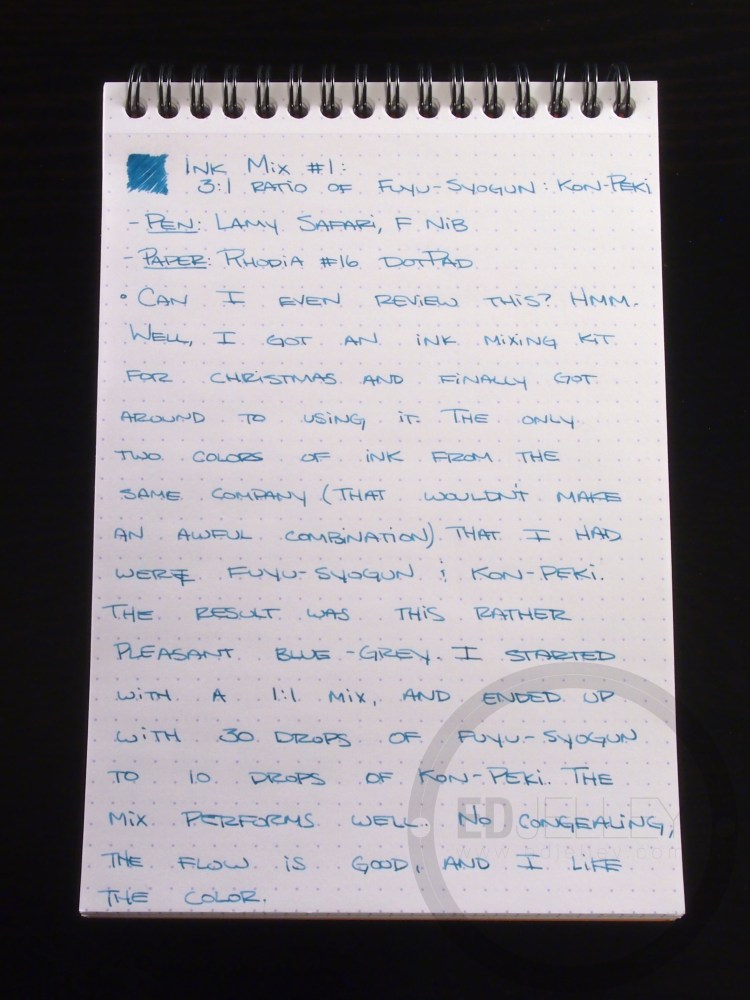 INK MIX #1:
3:1 RATIO OF FUYU-SYOGUN : KON-PEKI
- PEN: LAMY SAFARI, F NIB
- PAPER: RHODIA #16 DOTPAD
• CAN I EVEN REVIEW THIS? HMM.
WELL, I GOT AN INK MIXING KIT
FOR CHRISTMAS AND FINALLY GOT
AROUND TO USING IT. THE ONLY
TWO COLORS OF INK FROM THE
SAME COMPANY (THAT WOULDN'T MAKE
AN AWFUL COMBINATION) THAT I HAD
WERE FUYU-SYOGUN & KON-PEKI.
THE RESULT WAS THIS RATHER
PLEASANT BLUE-GREY. I STARTED
WITH A 1:1 MIX, AND ENDED UP
WITH 30 DROPS OF FUYU-SYOGUN
TO 10 DROPS OF KON-PEKI. THE
MIX PERFORMS WELL. NO CONGEALING,
THE FLOW IS GOOD, AND I LIKE
THE COLOR.
ED JELLEY
www.edjelley.com